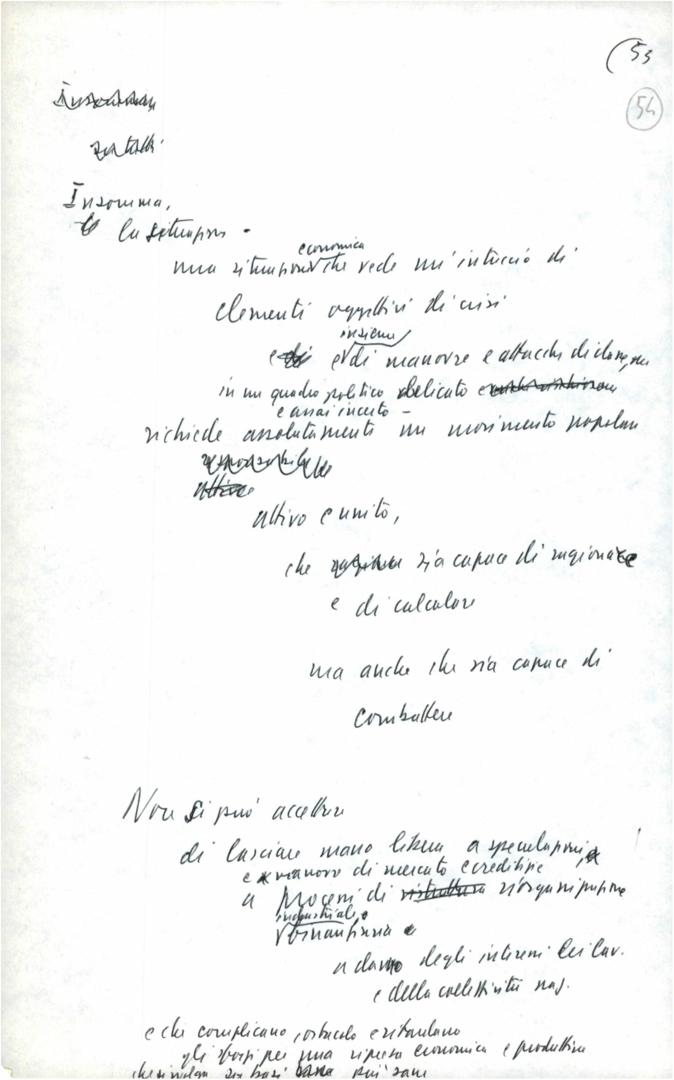 (53
54
Insomma,
la situazione -
economica
una situazione che vede un'intreccio di
elementi oggettivi di crisi
insieme
e di manovre e attacchi di classe,
in un quadro politico delicato e
e assai incerto -
richiede assolutamente un movimento popolare
attivo
attivo e unito,
che sia capace di ragionare
e di calcolare
ma anche che sia capace di
combattere
Non si può accettare
di lasciare mano libera a speculazioni,
e manovre di mercato e creditizie
a processi di riorganizzazione
industriale
finanziaria e
a danno degli interessi dei lav.
e della collettività naz.
e che complicano, ostacolano e ritardano
gli sforzi per una ripresa economica e produttiva
che si volga su basi più sane